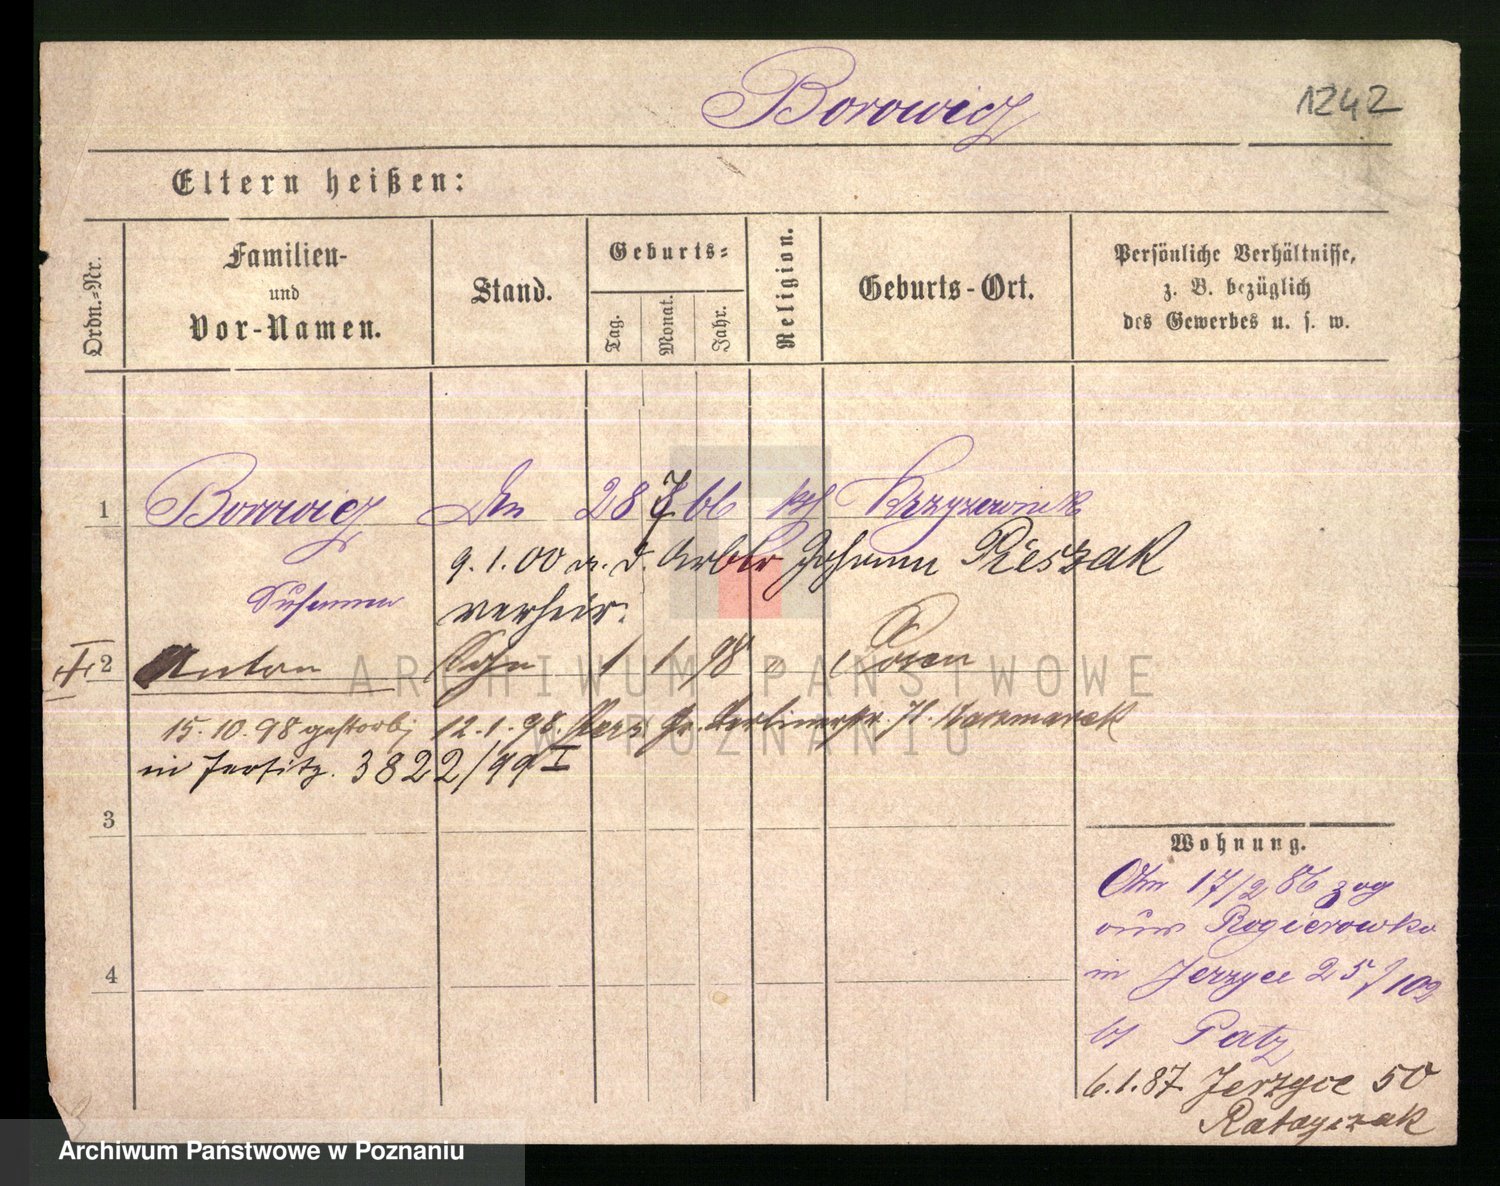 Borowicz
1242
Eltern heißen:
Ordn.-Nr.
Familien-
und
Vor-Namen.
Stand.
Geburts-
Tag.
Monat.
Jahr.
Religion.
Geburts-Ort.
Persönliche Verhältnisse,
z. B. bezüglich
des Gewerbes u. s. w.
1 Borowicz 28 7 66 kath
Susanna
9.1.00 a. d. Arbtr Johann Pieszak
verheir.
2 Anton Sohn 1 1 98 " Posen
15.10.98 gestorben 12.1.98.
in Jersitz. 3822/99 I
3
4
Wohnung.
17/2 86 zog
aus Rogierowko
in Jerzyce 25/102
bei Patz
6.1.87. Jerzyce 50
Ratajczak
ARCHIWUM PAŃSTWOWE
W POZNANIU
Archiwum Państwowe w Poznaniu